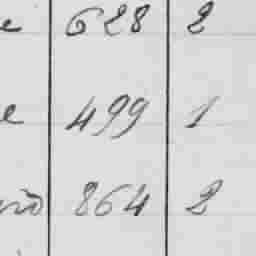 e 628 2
e 499 1
864 2